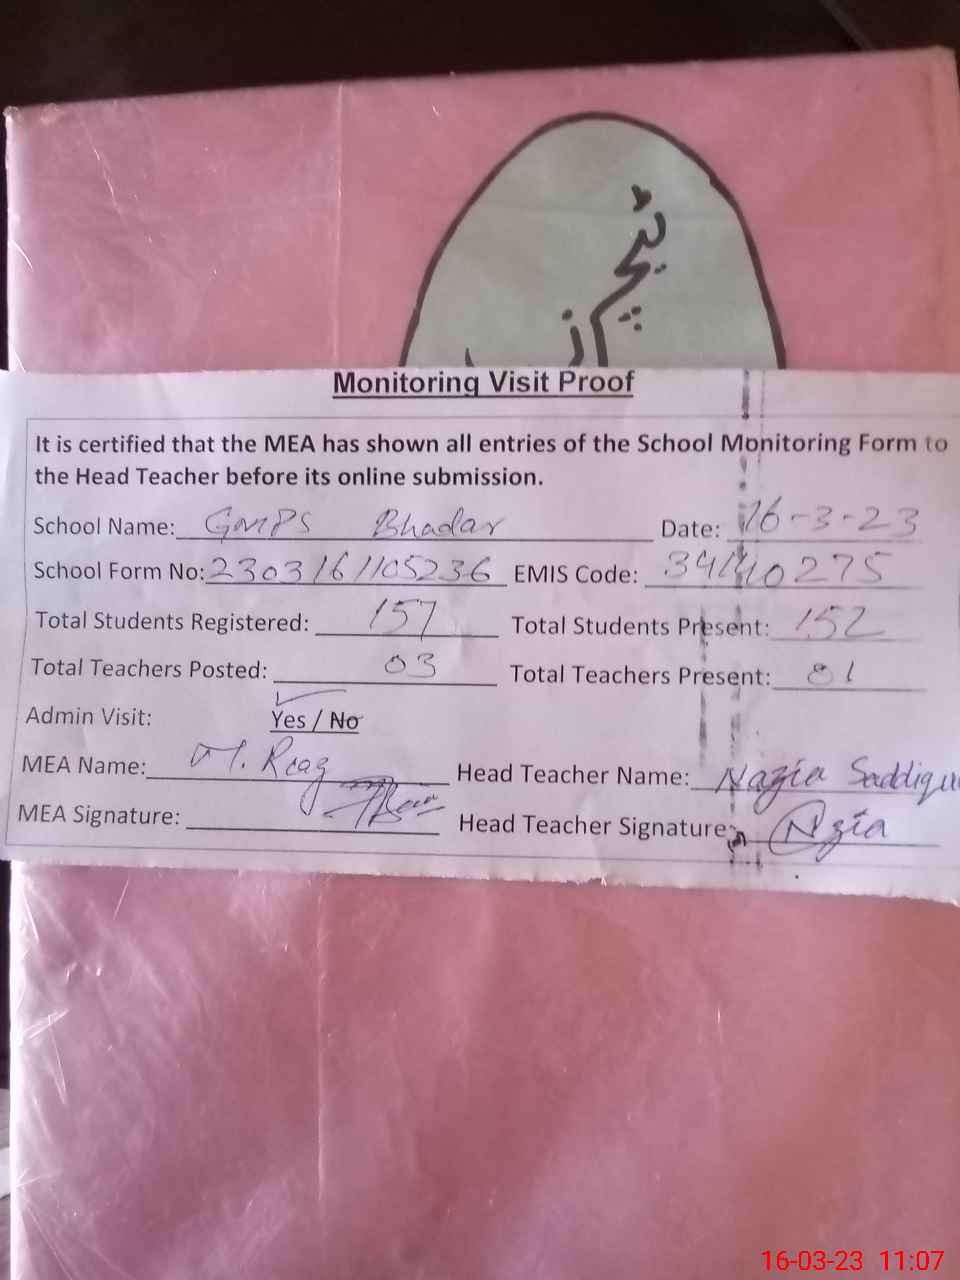 ٹیچرز
Monitoring Visit Proof
It is certified that the MEA has shown all entries of the School Monitoring Form to
the Head Teacher before its online submission.
School Name: GMPS Bhadar Date: 16-3-23
School Form No: 2303161105236 EMIS Code: 34140275
Total Students Registered: 157 Total Students Present: 152
Total Teachers Posted: 03 Total Teachers Present: 01
Admin Visit: Yes / No
MEA Name: M. Reaz Head Teacher Name: Nazia Saddiqu
MEA Signature: Head Teacher Signature: Nzia
16-03-23 11:07